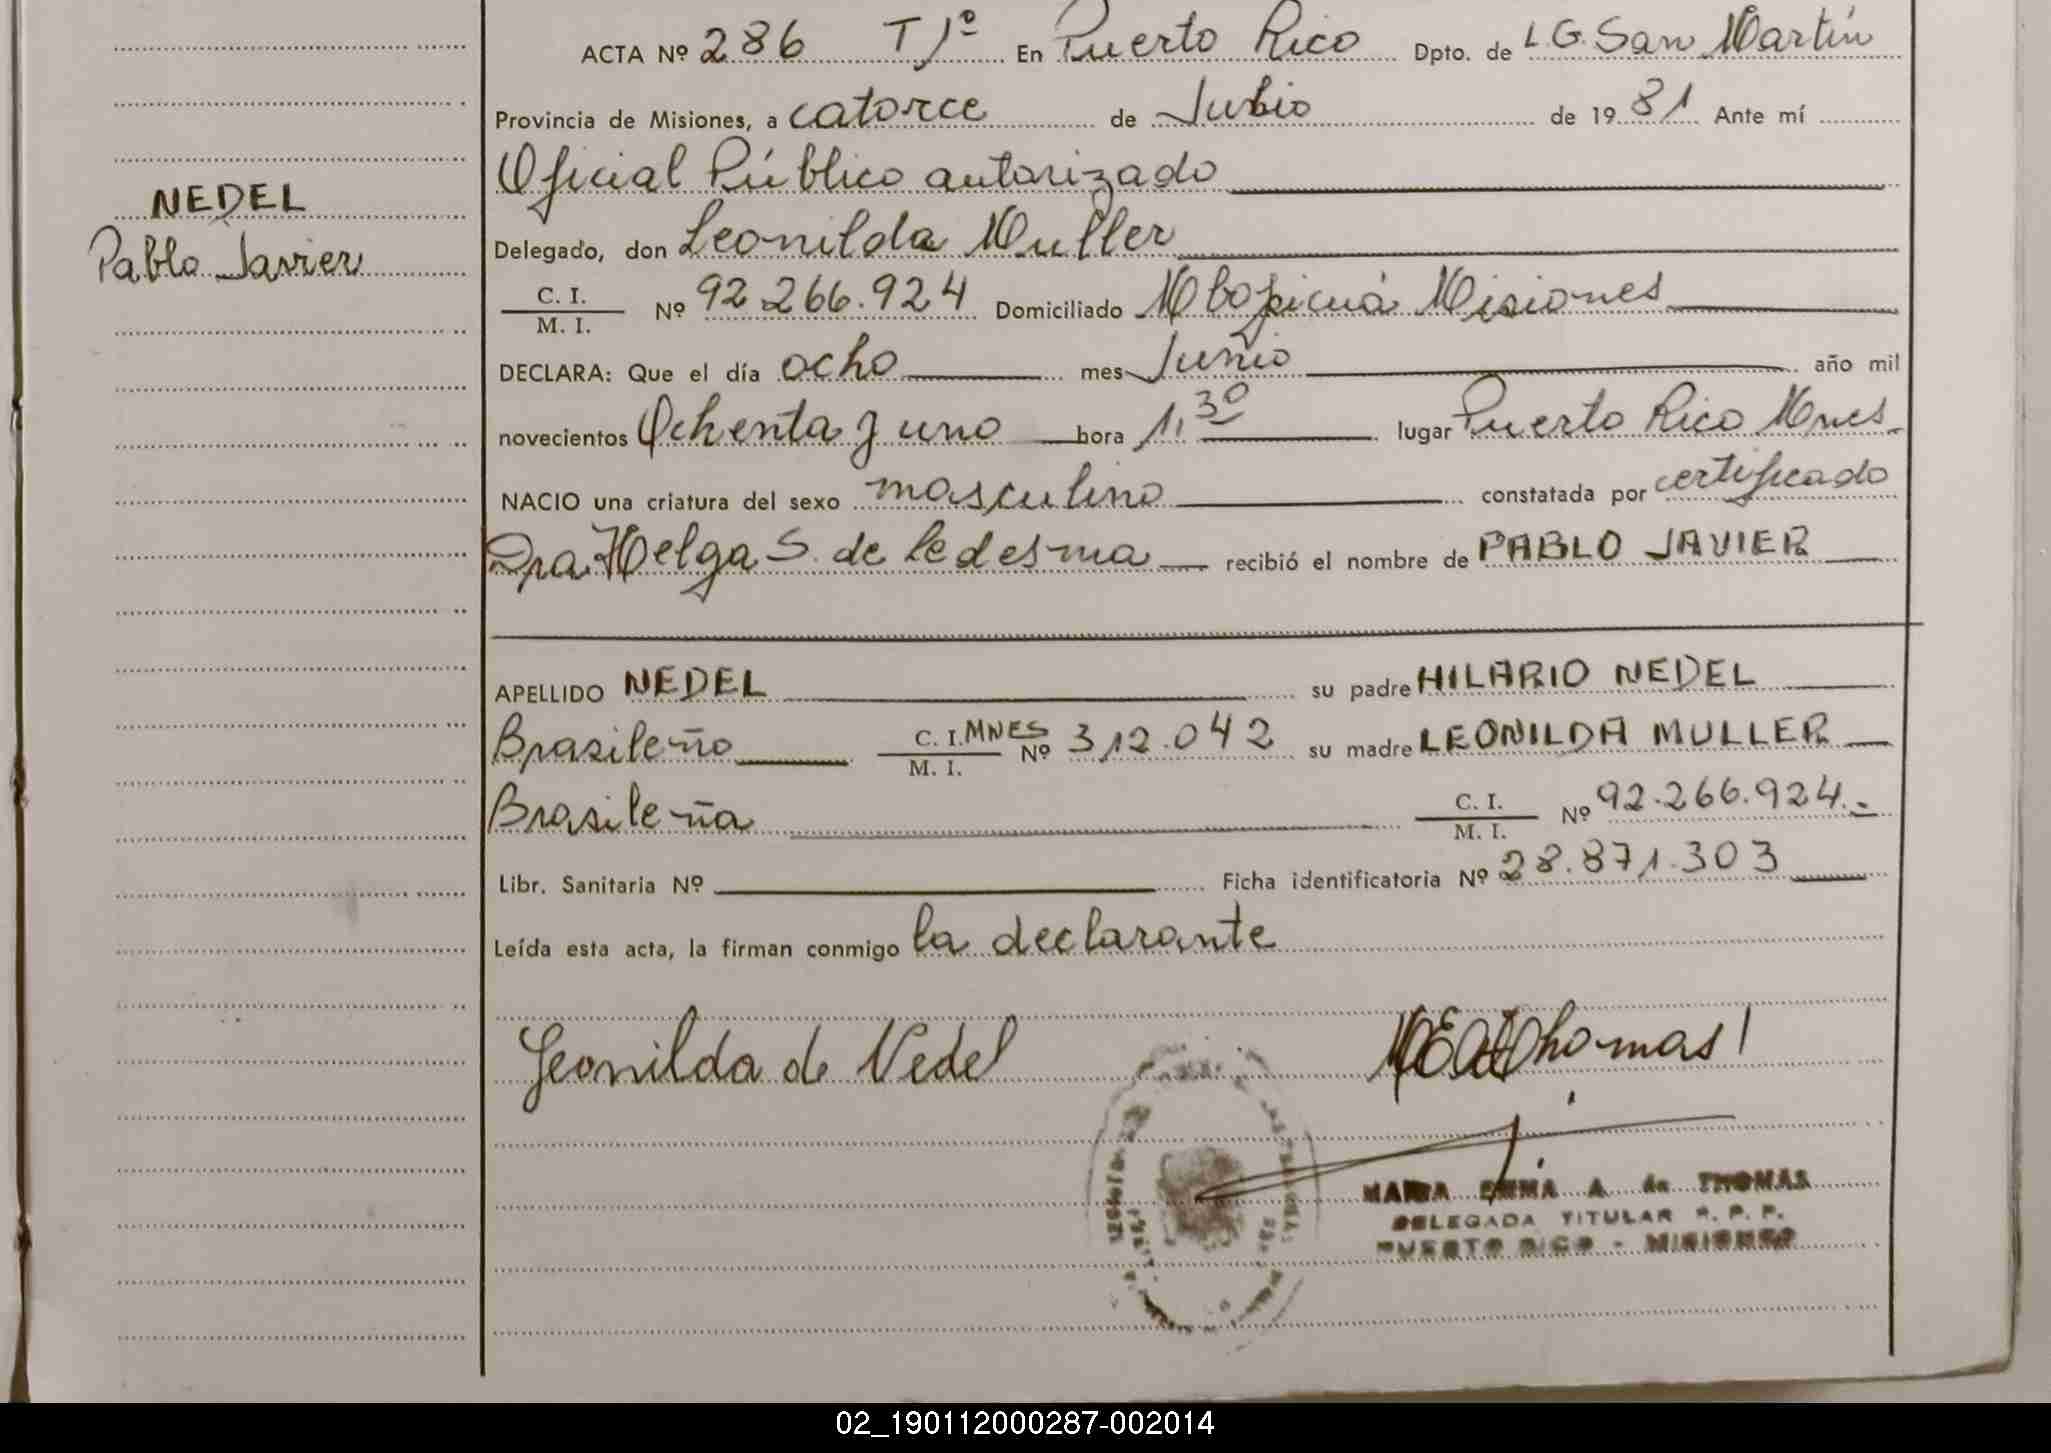 ACTA Nº 286 T 1º En Puerto Rico Dpto. de L.G. San Martín
Provincia de Misiones, a catorce de Julio de 1981 Ante mí
Oficial Público autorizado
NEDEL
Pablo Javier
Delegado, don Leonilda Muller
C. I.
M. I. Nº 92.266.924 Domiciliado Mbopicuá Misiones
DECLARA: Que el día ocho mes Junio año mil
novecientos Ochenta y uno hora 1,30 lugar Puerto Rico Mnes.
NACIO una criatura del sexo masculino constatada por certificado
Dra. Helga S. de Ledesma recibió el nombre de PABLO JAVIER
APELLIDO NEDEL su padre HILARIO NEDEL
Brasileño C. I. MNES
M. I. Nº 312.042 su madre LEONILDA MULLER
Brasileña C. I.
M. I. Nº 92.266.924.-
Libr. Sanitaria Nº Ficha identificatoria Nº 28.871.303
Leída esta acta, la firman conmigo la declarante
Leonilda de Nedel Thomas
MARIA EMMA A. de THOMAS
DELEGADA TITULAR R. P. P.
PUERTO RICO - MISIONES
02_190112000287-002014